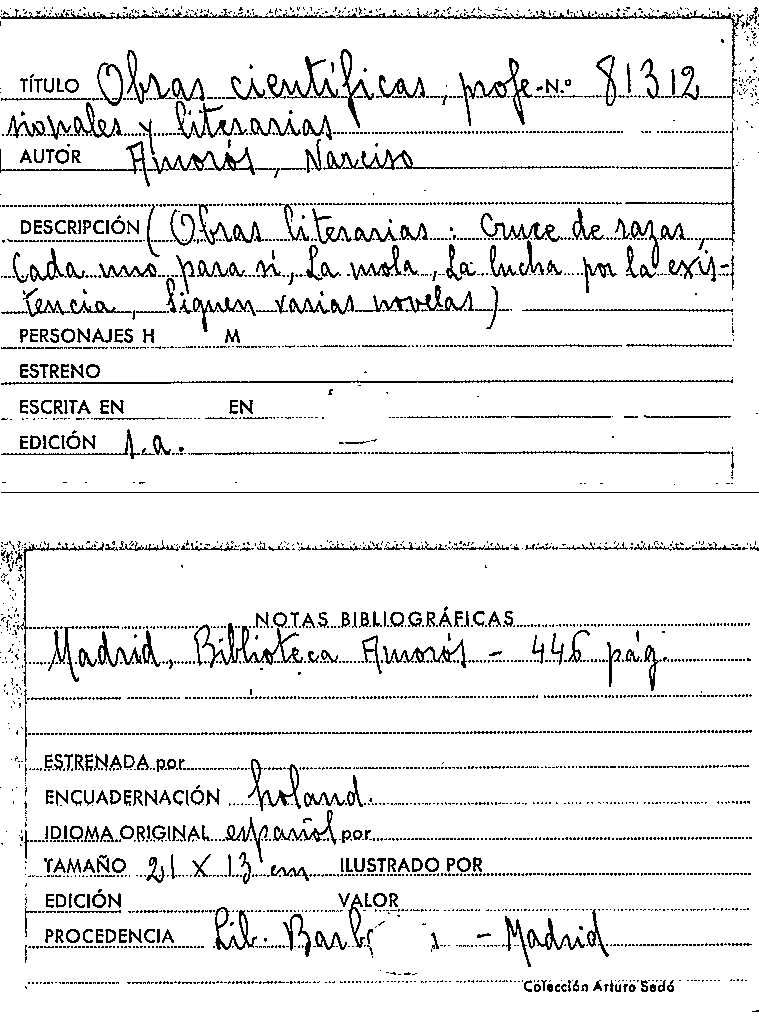 TÍTULO Obras científicas, profe- N.º 81312
sionales y literarias
AUTOR Amorós, Narciso
DESCRIPCIÓN (Obras literarias: Cruce de razas,
Cada uno para sí, La mola, La lucha por la exis-
tencia, siguen varias novelas)
PERSONAJES H M
ESTRENO
ESCRITA EN EN
EDICIÓN s.a.
NOTAS BIBLIOGRÁFICAS
Madrid, Biblioteca Amorós - 446 pág.
ESTRENADA por
ENCUADERNACIÓN holand.
IDIOMA ORIGINAL español por
TAMAÑO 21 X 13 cm ILUSTRADO POR
EDICIÓN VALOR
PROCEDENCIA Lib. - Madrid
Colección Arturo Sedó